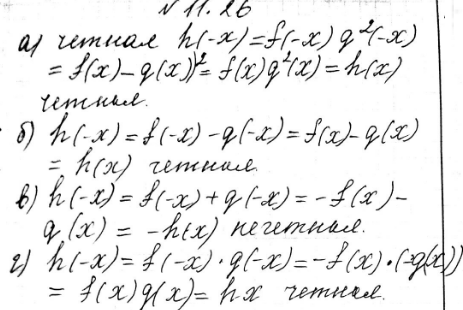 № 11.26
а) четная h(-x) = f(-x) g²(-x)
= f(x) - g(x))² = f(x) g²(x) = h(x)
четная.
б) h(-x) = f(-x) - g(-x) = f(x) - g(x)
= h(x) четная.
в) h(-x) = f(-x) + g(-x) = -f(x) -
g(x) = -h(x) нечетная.
г) h(-x) = f(-x) · g(-x) = -f(x) · (-g(x))
= f(x) g(x) = hx четная.